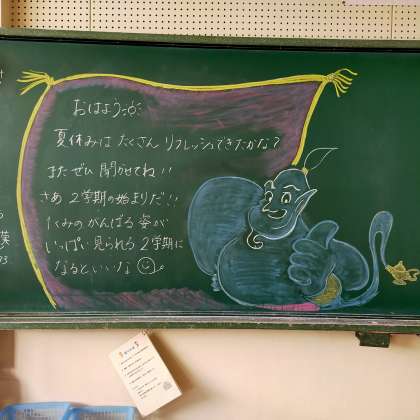 おはよう
夏休みは たくさん リフレッシュできたかな?
またぜひ 聞かせてね!!
さあ 2学期の始まりだ!!
たくみのがんばる姿が
いっぱい見られる 2学期に
なるといいな
漢